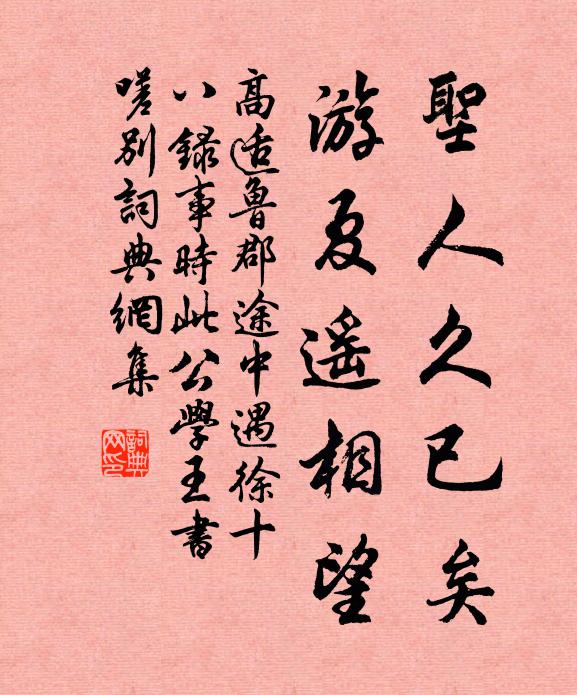 聖人久已矣
游夏遥相望
高适魯郡途中遇徐十
八録事時此公學王書
嗟别詞典網集
詞典网印